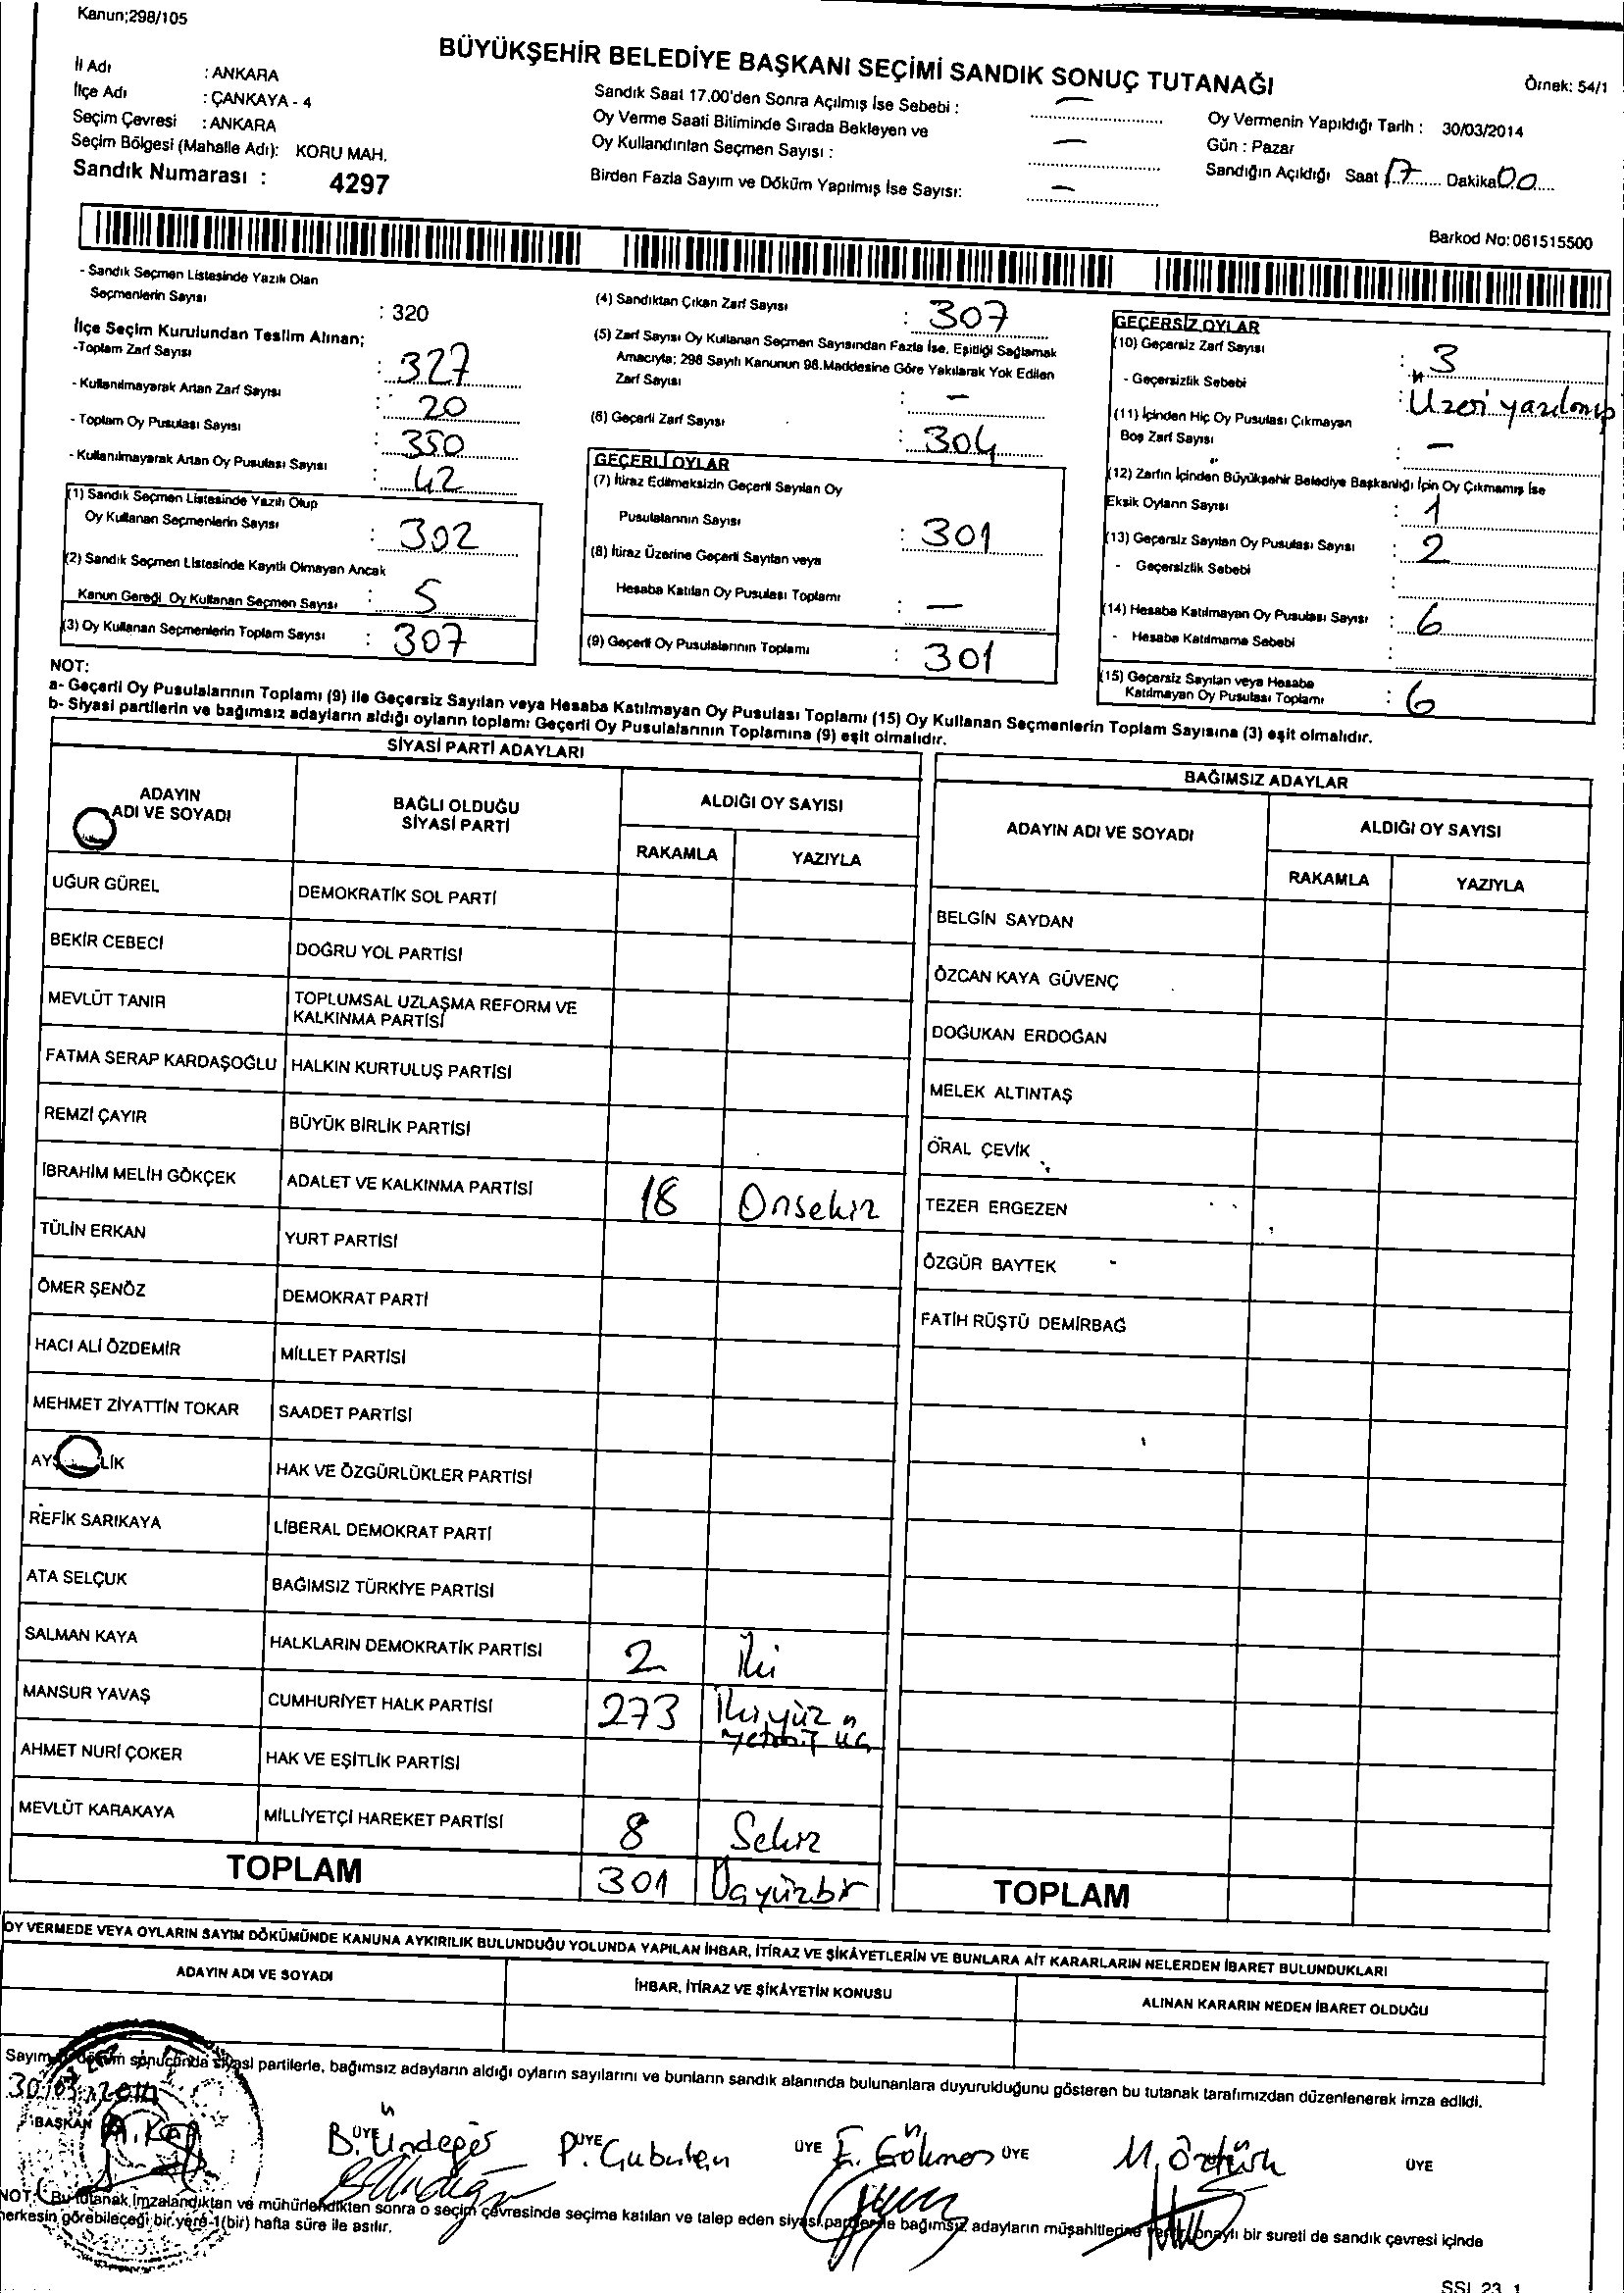 Kanun;298/105
BÜYÜKŞEHİR BELEDİYE BAŞKANI SEÇİMİ SANDIK SONUÇ TUTANAĞI
Örnek: 54/1
İl Adı : ANKARA
İlçe Adı : ÇANKAYA - 4
Seçim Çevresi : ANKARA
Seçim Bölgesi (Mahalle Adı): KORU MAH.
Sandık Numarası : 4297
Sandık Saat 17.00'den Sonra Açılmış İse Sebebi : —
Oy Verme Saati Bitiminde Sırada Bekleyen ve
Oy Kullandırılan Seçmen Sayısı : —
Birden Fazla Sayım ve Döküm Yapılmış İse Sayısı: —
Oy Vermenin Yapıldığı Tarih : 30/03/2014
Gün : Pazar
Sandığın Açıldığı Saat 17 Dakika 00
Barkod No: 061515500
- Sandık Seçmen Listesinde Yazılı Olan
Seçmenlerin Sayısı : 320
İlçe Seçim Kurulundan Teslim Alınan;
-Toplam Zarf Sayısı : 327
- Kullanılmayarak Artan Zarf Sayısı : 20
- Toplam Oy Pusulası Sayısı : 350
- Kullanılmayarak Artan Oy Pusulası Sayısı : 42
(1) Sandık Seçmen Listesinde Yazılı Olup
Oy Kullanan Seçmenlerin Sayısı : 302
(2) Sandık Seçmen Listesinde Kayıtlı Olmayan Ancak
Kanun Gereği Oy Kullanan Seçmen Sayısı : 5
(3) Oy Kullanan Seçmenlerin Toplam Sayısı : 307
(4) Sandıktan Çıkan Zarf Sayısı : 307
(5) Zarf Sayısı Oy Kullanan Seçmen Sayısından Fazla İse, Eşitliği Sağlamak
Amacıyla; 298 Sayılı Kanunun 98.Maddesine Göre Yakılarak Yok Edilen
Zarf Sayısı : —
(6) Geçerli Zarf Sayısı : 304
GEÇERLİ OYLAR
(7) İtiraz Edilmeksizin Geçerli Sayılan Oy
Pusulalarının Sayısı : 301
(8) İtiraz Üzerine Geçerli Sayılan veya
Hesaba Katılan Oy Pusulası Toplamı : —
(9) Geçerli Oy Pusulalarının Toplamı : 301
GEÇERSİZ OYLAR
(10) Geçersiz Zarf Sayısı : 3
- Geçersizlik Sebebi : Üzeri yazılmış
(11) İçinden Hiç Oy Pusulası Çıkmayan
Boş Zarf Sayısı : —
(12) Zarfın İçinden Büyükşehir Belediye Başkanlığı İçin Oy Çıkmamış İse
Eksik Oyların Sayısı : 1
(13) Geçersiz Sayılan Oy Pusulası Sayısı : 2
- Geçersizlik Sebebi :
(14) Hesaba Katılmayan Oy Pusulası Sayısı : 6
- Hesaba Katılmama Sebebi :
(15) Geçersiz Sayılan veya Hesaba
Katılmayan Oy Pusulası Toplamı : 6
NOT:
a- Geçerli Oy Pusulalarının Toplamı (9) ile Geçersiz Sayılan veya Hesaba Katılmayan Oy Pusulası Toplamı (15) Oy Kullanan Seçmenlerin Toplam Sayısına (3) eşit olmalıdır.
b- Siyasi partilerin ve bağımsız adayların aldığı oyların toplamı Geçerli Oy Pusulalarının Toplamına (9) eşit olmalıdır.
SİYASİ PARTİ ADAYLARI
ADAYIN ADI VE SOYADI BAĞLI OLDUĞU SİYASİ PARTİ ALDIĞI OY SAYISI
RAKAMLA YAZIYLA
UĞUR GÜREL DEMOKRATİK SOL PARTİ
BEKİR CEBECİ DOĞRU YOL PARTİSİ
MEVLÜT TANIR TOPLUMSAL UZLAŞMA REFORM VE
KALKINMA PARTİSİ
FATMA SERAP KARDAŞOĞLU HALKIN KURTULUŞ PARTİSİ
REMZİ ÇAYIR BÜYÜK BİRLİK PARTİSİ
İBRAHİM MELİH GÖKÇEK ADALET VE KALKINMA PARTİSİ 18 Onsekiz
TÜLİN ERKAN YURT PARTİSİ
ÖMER ŞENÖZ DEMOKRAT PARTİ
HACI ALİ ÖZDEMİR MİLLET PARTİSİ
MEHMET ZİYATTİN TOKAR SAADET PARTİSİ
HAK VE ÖZGÜRLÜKLER PARTİSİ
REFİK SARIKAYA LİBERAL DEMOKRAT PARTİ
ATA SELÇUK BAĞIMSIZ TÜRKİYE PARTİSİ
SALMAN KAYA HALKLARIN DEMOKRATİK PARTİSİ 2 İki
MANSUR YAVAŞ CUMHURİYET HALK PARTİSİ 273 İkiyüz
yetmiş üç
AHMET NURİ ÇOKER HAK VE EŞİTLİK PARTİSİ
MEVLÜT KARAKAYA MİLLİYETÇİ HAREKET PARTİSİ 8 Sekiz
TOPLAM 301 Üçyüzbir
BAĞIMSIZ ADAYLAR
ADAYIN ADI VE SOYADI ALDIĞI OY SAYISI
RAKAMLA YAZIYLA
BELGİN SAYDAN
ÖZCAN KAYA GÜVENÇ
DOĞUKAN ERDOĞAN
MELEK ALTINTAŞ
ORAL ÇEVİK
TEZER ERGEZEN
ÖZGÜR BAYTEK
FATİH RÜŞTÜ DEMİRBAĞ
TOPLAM
OY VERMEDE VEYA OYLARIN SAYIM DÖKÜMÜNDE KANUNA AYKIRILIK BULUNDUĞU YOLUNDA YAPILAN İHBAR, İTİRAZ VE ŞİKÂYETLERİN VE BUNLARA AİT KARARLARIN NELERDEN İBARET BULUNDUKLARI
ADAYIN ADI VE SOYADI İHBAR, İTİRAZ VE ŞİKÂYETİN KONUSU ALINAN KARARIN NEDEN İBARET OLDUĞU
Sayım döküm sonucunda siyasi partilerle, bağımsız adayların aldığı oyların sayılarını ve bunların sandık alanında bulunanlara duyurulduğunu gösteren bu tutanak tarafımızdan düzenlenerek imza edildi.
30.03.2014
BAŞKAN ÜYE ÜYE ÜYE ÜYE ÜYE
B. Ündeğer E. Gökmen M. Öztürk
NOT: Bu tutanak imzalandıktan ve mühürlendikten sonra o seçim çevresinde seçime katılan ve talep eden siyasi partilerle bağımsız adayların müşahitlerine verilir, onaylı bir sureti de sandık çevresi içinde
herkesin görebileceği bir yere 1(bir) hafta süre ile asılır.
SSI 23 1